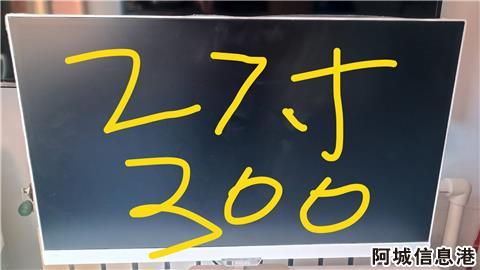 27寸
300
阿城信息港